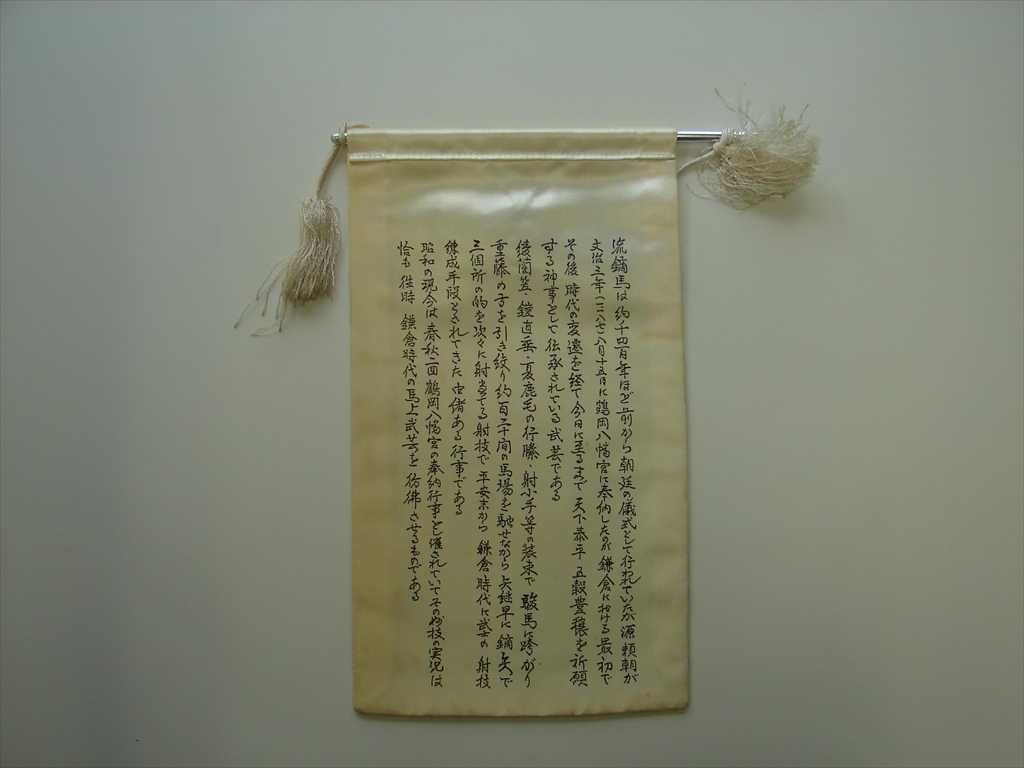 流鏑馬は約千四百年ほど前から朝廷の儀式として行われていたが源頼朝が
文治三年（一一八七）八月十五日に鶴岡八幡宮に奉納したのが鎌倉における最初で
その後 時代の変遷を経て今日に至るまで 天下泰平 五穀豊穣を祈願
する神事として伝承されている武芸である
綾藺笠・鎧直垂・夏鹿毛の行縢・射小手等の装束で 駿馬に跨がり
重籐の弓を引き絞り約百三十間の馬場を馳せながら矢継早に鏑矢で
三個所の的を次々に射当てる射技で平安末から鎌倉時代に武士の射技
錬成手段とされてきた由緒ある行事である
昭和の現今は春秋二回鶴岡八幡宮の奉納行事とし催されていてその妙技の実況は
恰も往時 鎌倉時代の馬上武芸を彷彿させるものである